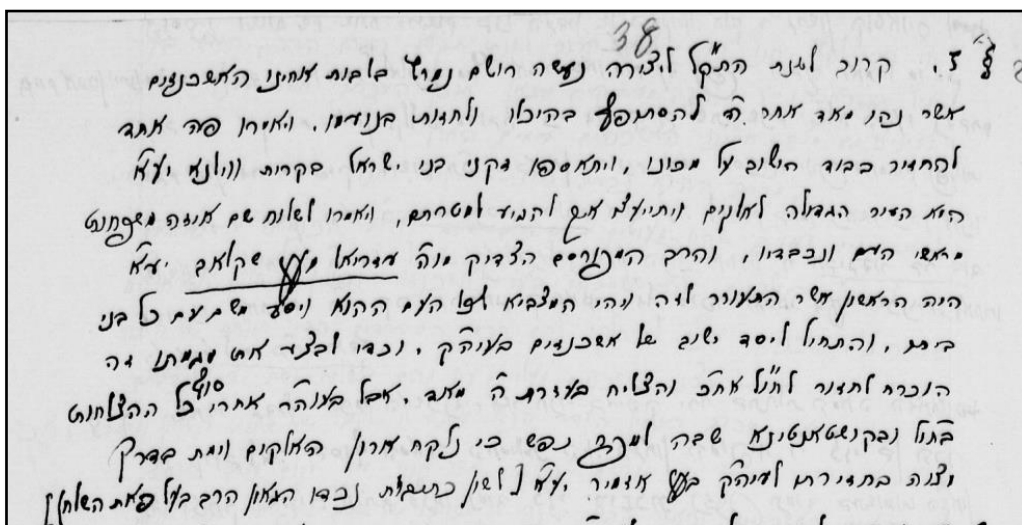 38
ג. קרוב לשנת התק"ל ליצירה נעשה רושם נמרץ בלבות אחינו האשכנזים
אשר נהו מאד אחר ה' להסתפח בהיכלו ולחזות בנועמו, ואמרו פה אחד
להחזיר כבוד הישוב על מכונו, ויתאספו זקני בני ישראל בקרית ווילנא יע"א
היא העיר הגדולה לאלקים ויתייעצו איך להגיע למטרתם, ואמרו לשלוח שם אגודה משפחות
מראשי העם ונכבדיו, והרב המפורסם הצדיק מוה' עזריאל משקלאב יע"א
היה הראשון אשר התעורר לזה ויהי המצביא לפני העם ההוא ויסע משם עם כל בני
ביתו, והתחיל ליסד ישוב של אשכנזים בעיה"ק, וכדי לבצר אות מגמתו זה
הוכרח לחזור לחו"ל אח"כ והצליח בעזרת ה' מאד, אבל בעוה"ר אחרי כל ההצלחות סוף
בחו"ל ובקושטאנטינא שבה למרה נפש כי נלקח ארון האלקים וימת בדרך
וצוה בחזירתו לעיה"ק בעיר אזמיר יע"א [לשון כתיבת נכדו הגאון הרב בעל פאת השלחן]